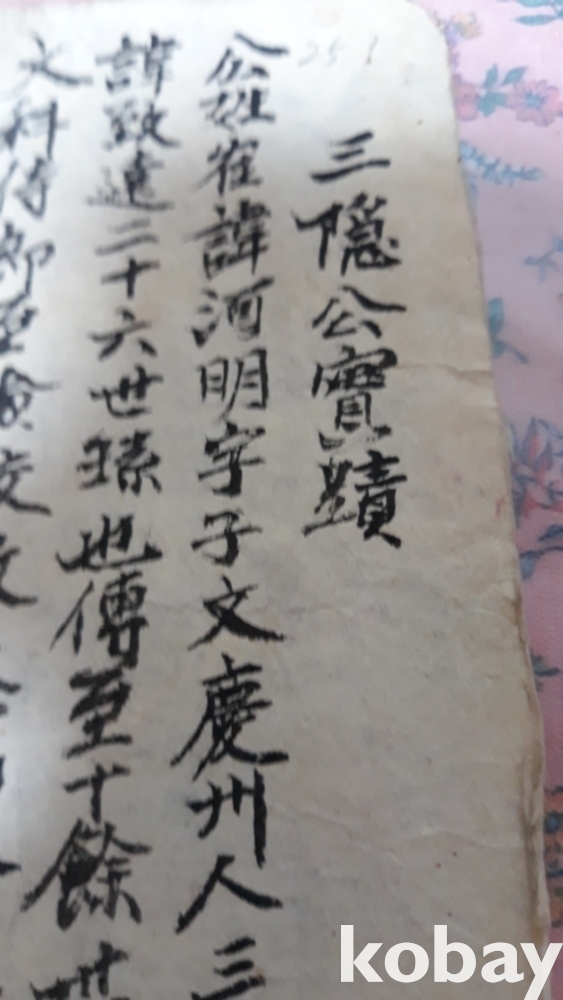 三隠公實蹟
公姓崔諱河明字子文慶州人三
諱致遠二十六世孫也傳至十餘世
文科侍郎至檢校
kobay